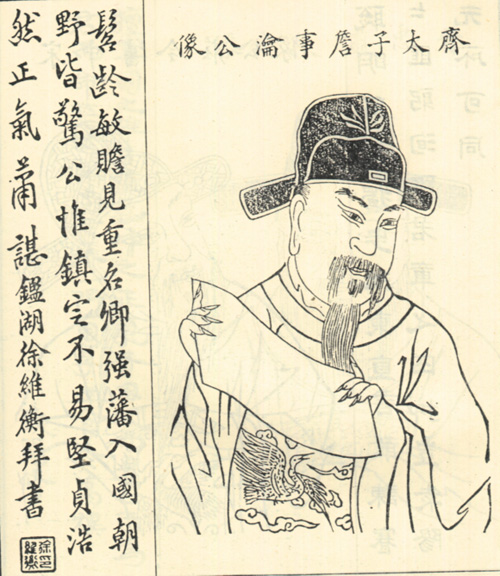 齊太子詹事瀹公像
髫齡敏贍見重名卿强藩入國朝
野皆驚公惟鎮定不易堅貞浩
然正氣蕭諶鑑湖徐維衡拜書